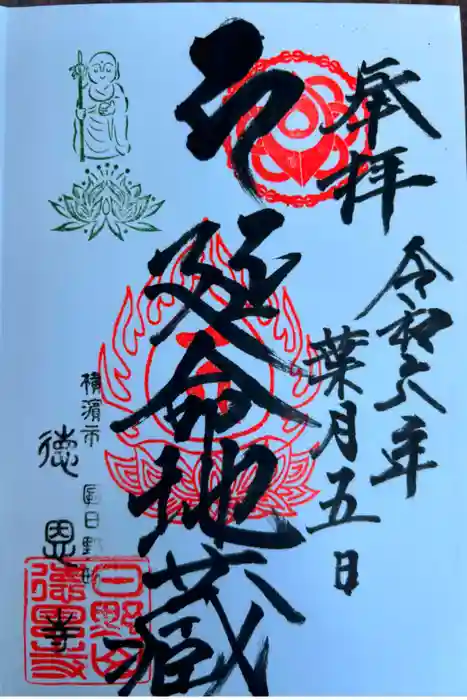 奉拝
令和六年
葉月五日
延命地蔵
横濱市
徳恩寺